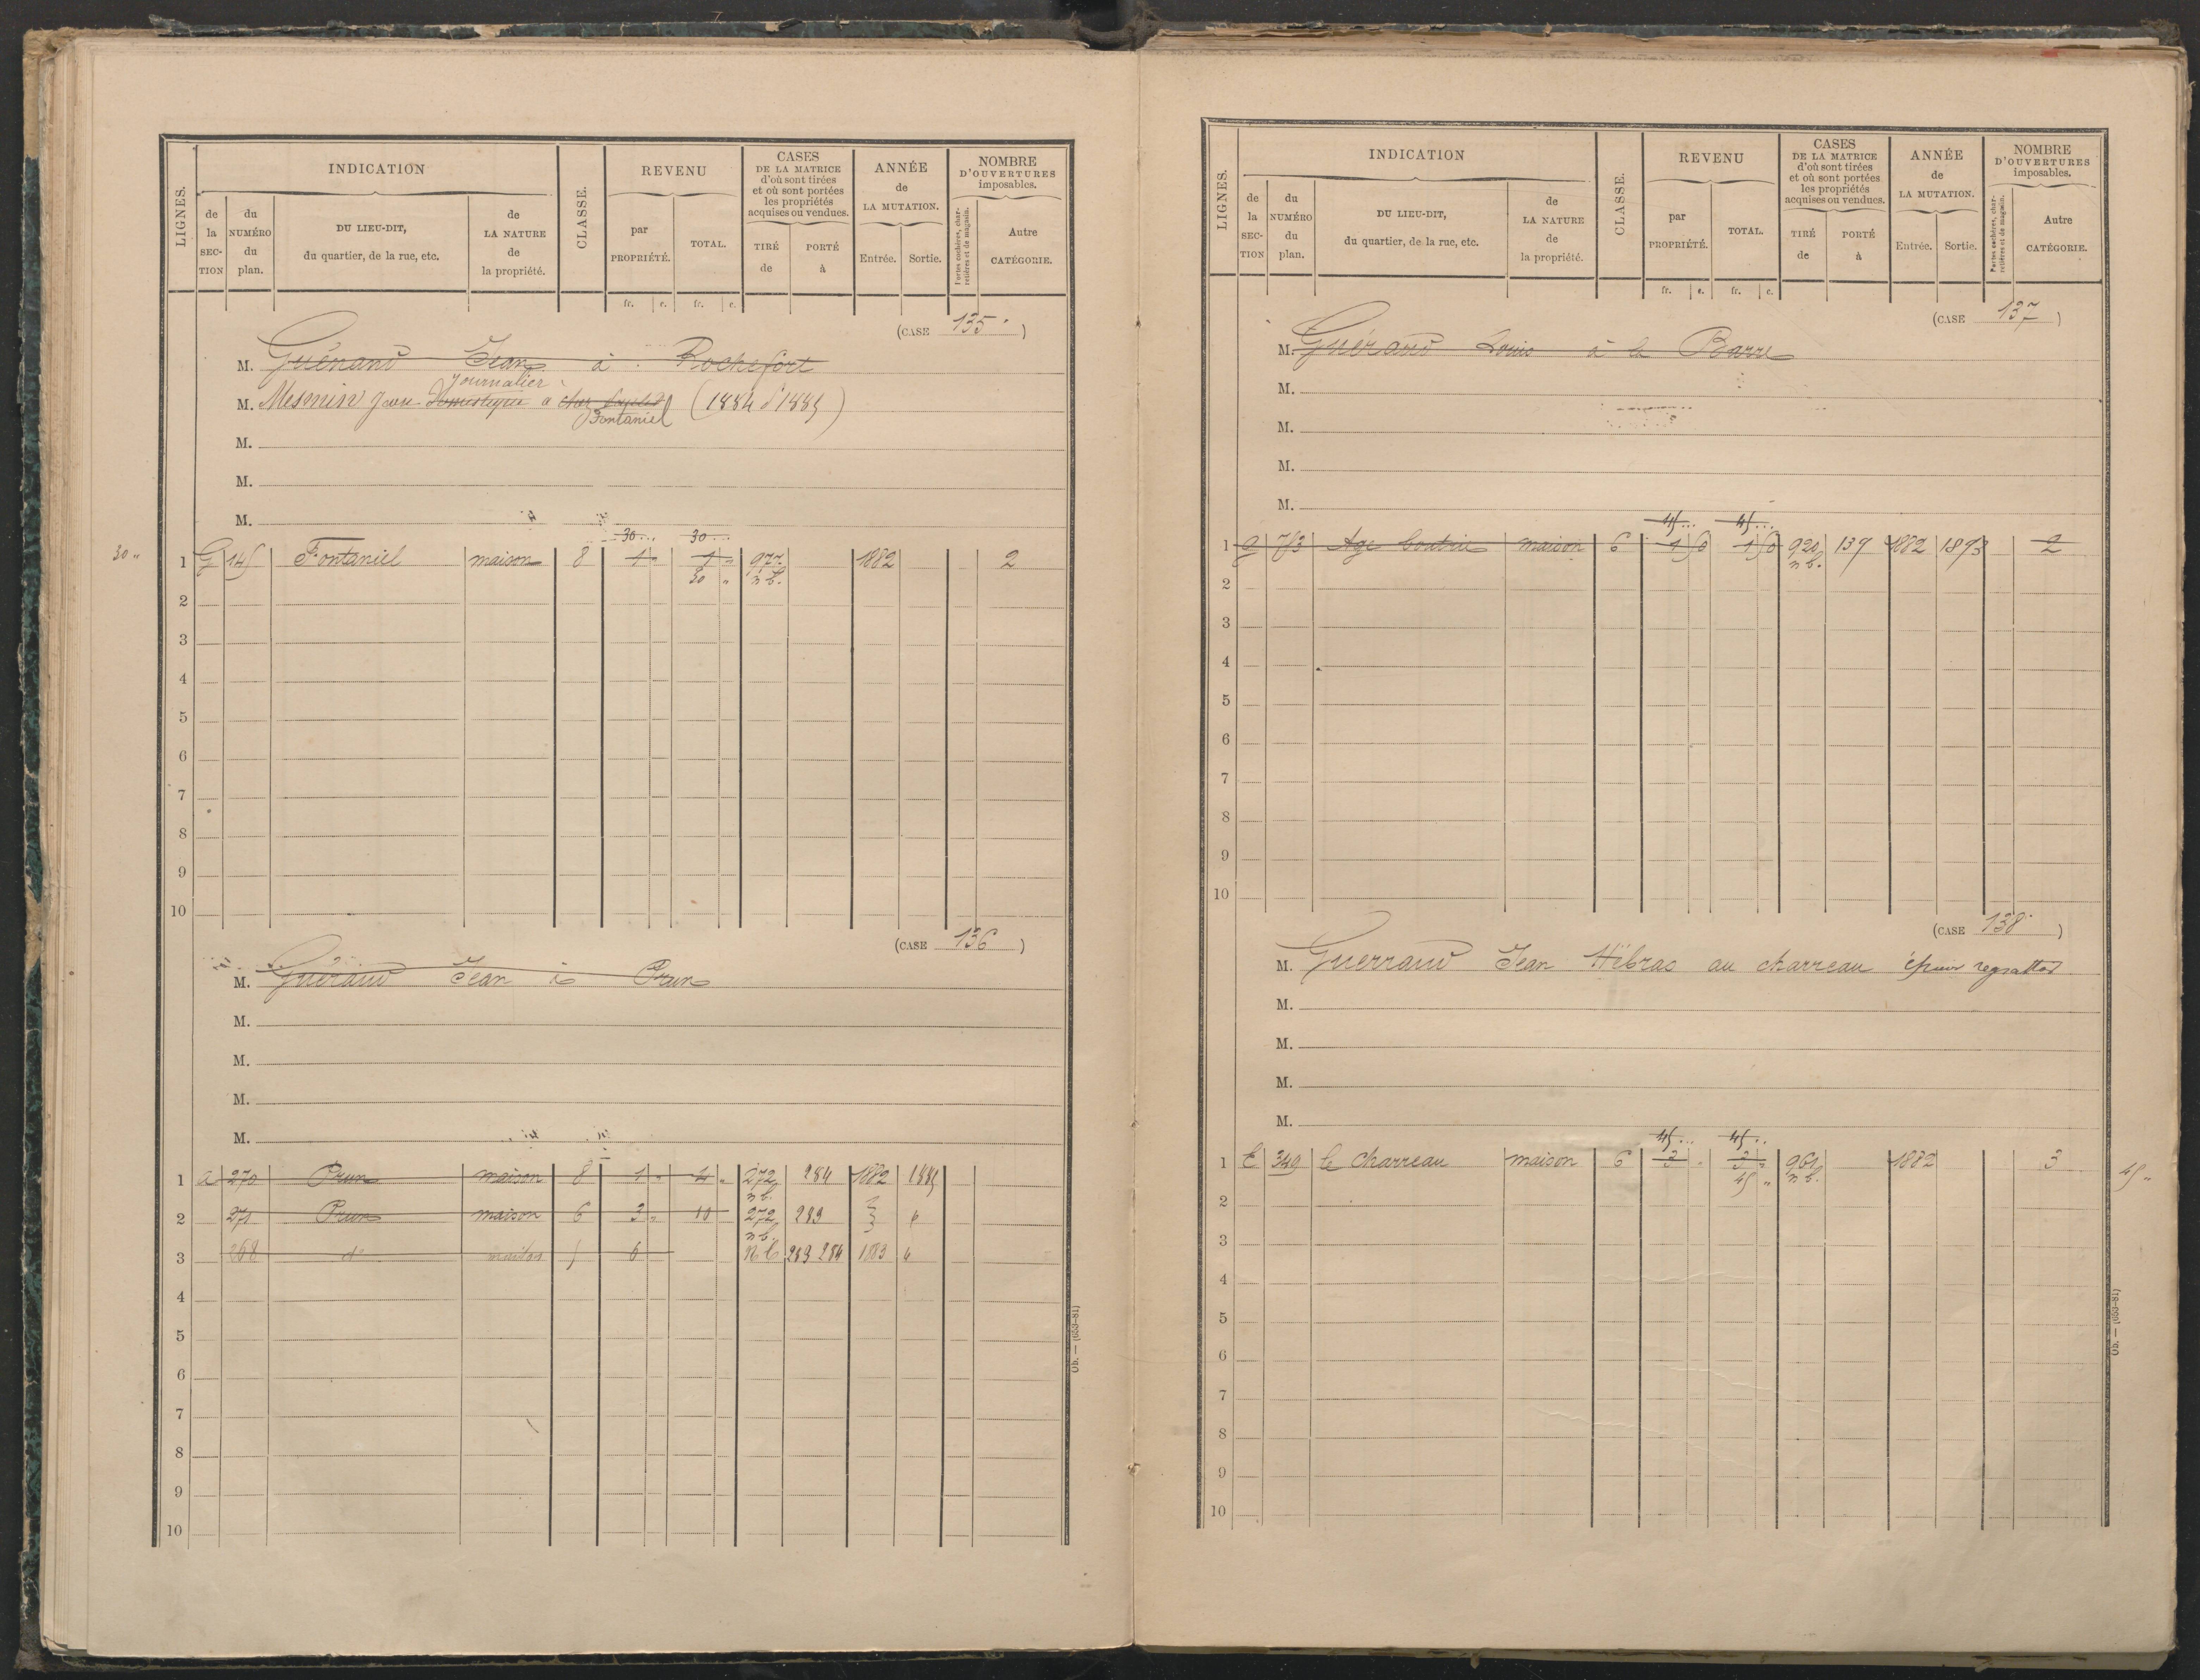 LIGNES.
INDICATION
de la SEC-TION
du NUMÉRO du plan.
DU LIEU-DIT, du quartier, de la rue, etc.
de LA NATURE de la propriété.
CLASSE.
REVENU
par PROPRIÉTÉ.
TOTAL.
fr. c. fr. c.
CASES DE LA MATRICE d'où sont tirées et où sont portées les propriétés acquises ou vendues.
TIRÉ de
PORTÉ à
ANNÉE de LA MUTATION.
Entrée. Sortie.
NOMBRE D'OUVERTURES imposables.
Portes cochères, charretières et de magasin.
Autre CATÉGORIE.
(CASE 135)
M. Guérand Jean à Rochefort
Journalier
M. Mesmin Jean Domestique à chez (1884 d'1885)
Fontaniel
M.
M.
M.
30 .. 30 ..
30 "
1 G 145 Fontaniel maison 8 1 " 1 " 977 1882 2
30 " n b.
2
3
4
5
6
7
8
9
10
(CASE 136)
M. Guérand Jean à Prun
M.
M.
M.
M.
1 a 270 Prun maison 8 1 " 4 " 272 284 1882 1885
n b.
2 271 Prun maison 6 3 " 10 272 283
n b.
3 268 d° maison 5 6 n b 283 284 1883
4
5
6
7
8
9
10
Ob. — (653-81)
LIGNES.
INDICATION
de la SEC-TION
du NUMÉRO du plan.
DU LIEU-DIT, du quartier, de la rue, etc.
de LA NATURE de la propriété.
CLASSE.
REVENU
par PROPRIÉTÉ.
TOTAL.
fr. c. fr. c.
CASES DE LA MATRICE d'où sont tirées et où sont portées les propriétés acquises ou vendues.
TIRÉ de
PORTÉ à
ANNÉE de LA MUTATION.
Entrée. Sortie.
NOMBRE D'OUVERTURES imposables.
Portes cochères, charretières et de magasin.
Autre CATÉGORIE.
(CASE 137)
M. Guérand Louis à la Barre
M.
M.
M.
M.
45 .. 45 ..
1 G 753 Age maison 6 1 50 1 50 920 139 1882 1893 2
n b.
2
3
4
5
6
7
8
9
10
(CASE 138)
M. Guerrand Jean Hébrac au charreau
M.
M.
M.
M.
45 .. 45 ..
1 E 349 le Charreau maison 6 3 " 3 " 961 1882 3
45 " n b.
45 "
2
3
4
5
6
7
8
9
10
Ob. — (653-81)